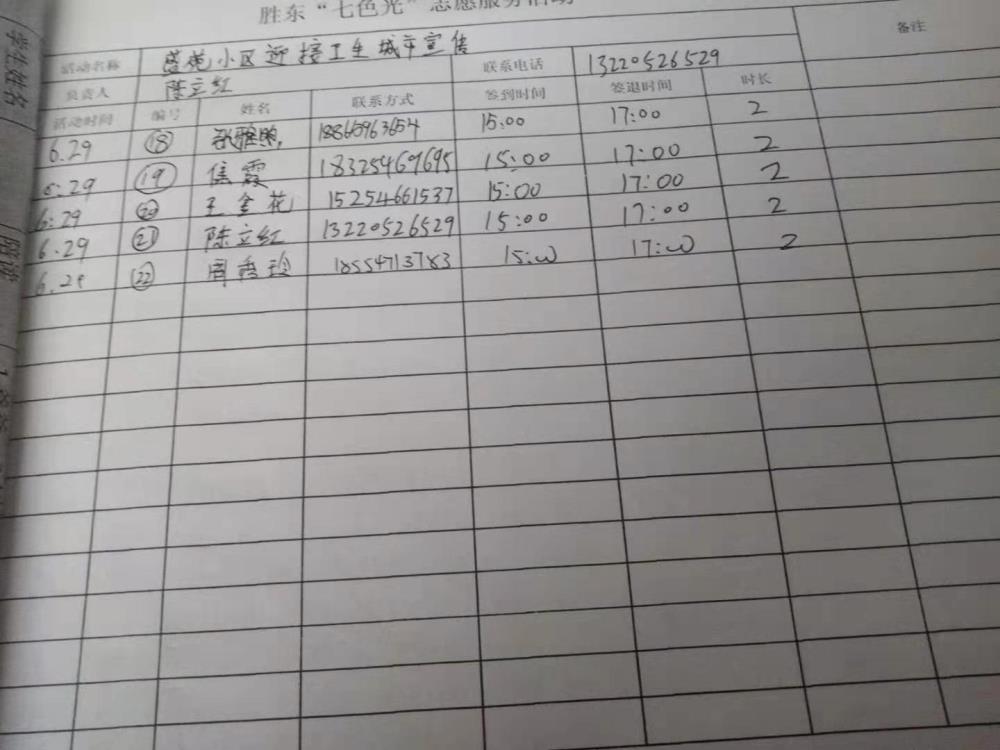 胜东“七色光”志愿服务活动
活动名称 盛苑小区迎接卫生城市宣传 联系电话 13220526529 备注
负责人 陈立红
活动时间 编号 姓名 联系方式 签到时间 签退时间 时长
6.29 18 15:00 17:00 2
6.29 19 焦霞 18325469695 15:00 17:00 2
6.29 20 王金花 15254661537 15:00 17:00 2
6.29 21 陈立红 13220526529 15:00 17:00 2
6.29 22 周秀玲 18554713783 15:00 17:00 2
学生姓名